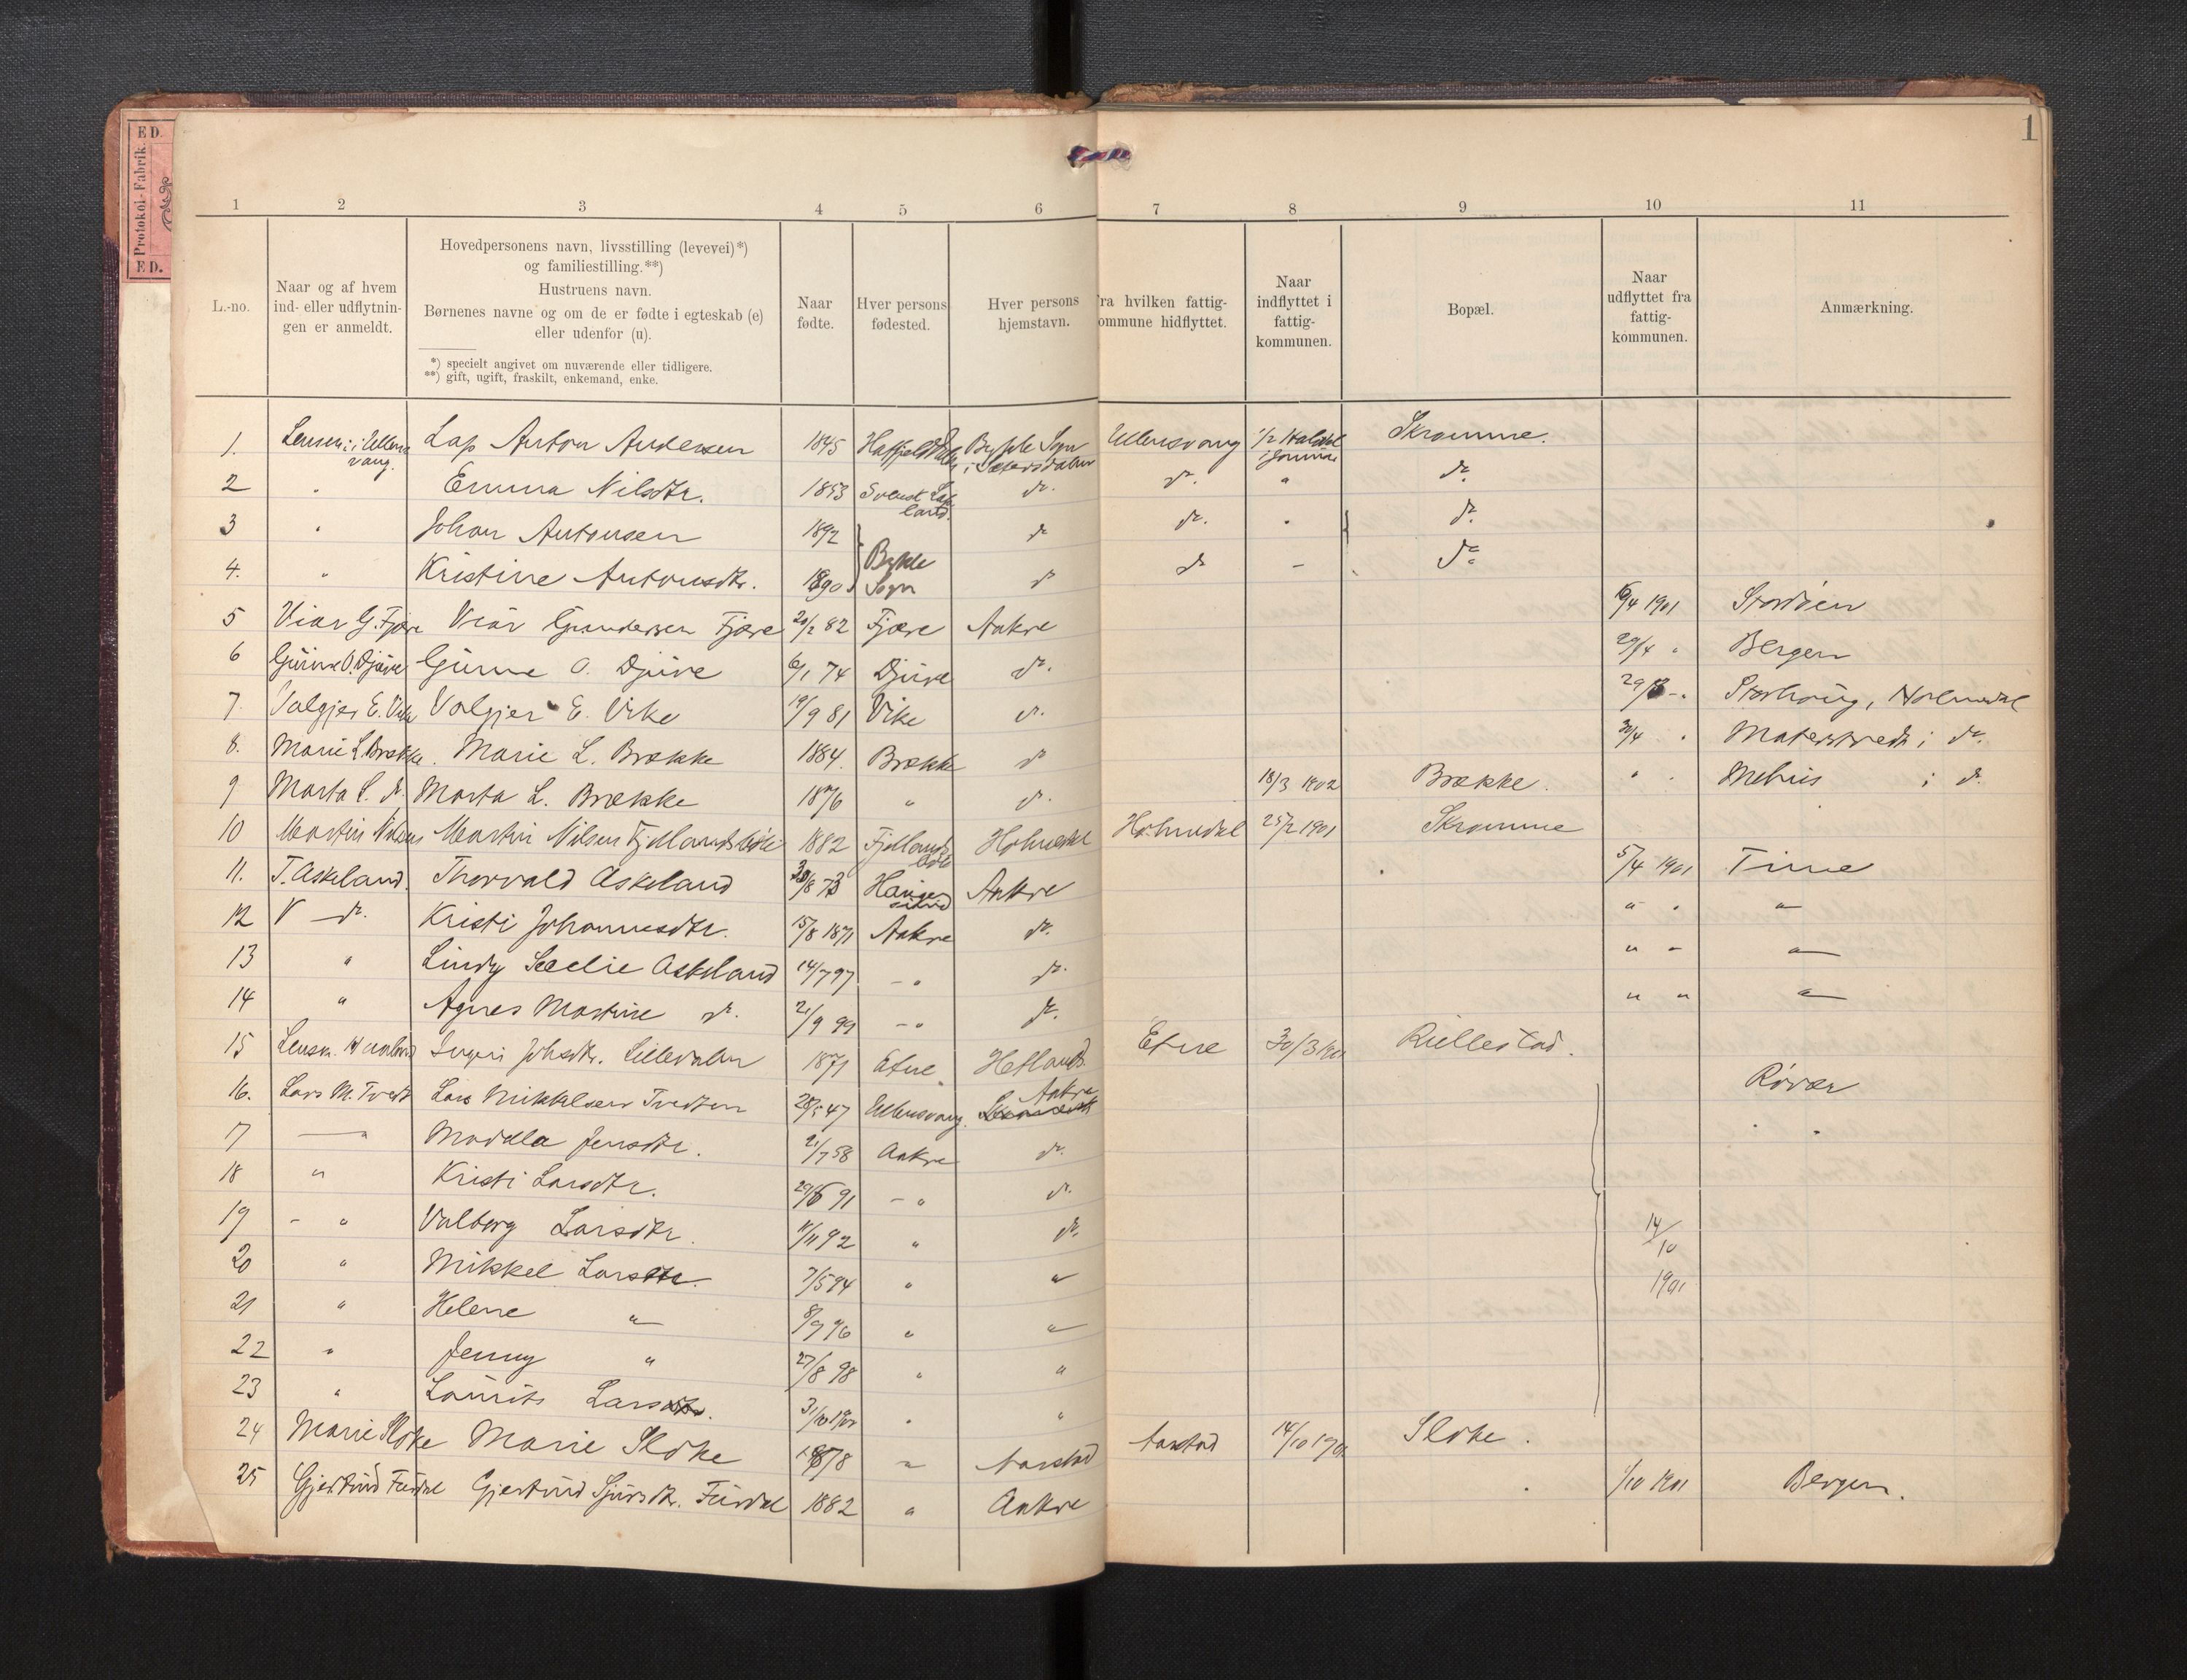 ED.
Protokol-Fabrik.
ED.
1
1 2 3 4 5 6 7 8 9 10 11
L.-no.
Naar og af hvem
ind- eller udflytnin-
gen er anmeldt.
Hovedpersonens navn, livsstilling (levevei)*)
og familiestilling.**)
Hustruens navn.
Børnenes navne og om de er fødte i egteskab (e)
eller udenfor (u).
*) specielt angivet om nuværende eller tidligere.
**) gift, ugift, fraskilt, enkemand, enke.
Naar
fødte.
Hver persons
fødested.
Hver persons
hjemstavn.
ra hvilken fattig-
ommune hidflyttet.
Naar
indflyttet i
fattig-
kommunen.
Bopæl.
Naar
udflyttet fra
fattig-
kommunen.
Anmærkning.
1. Lap Anton Andersen 1845 Ullensvang Skromme.
2 " Emma Nilsdtr. 1853 Svensk Lap land. do. do. " do.
3 " Johan Antonsen 1892 do do. " do.
4. " Kristine Antonsdtr. 1890 Bykle Sogn do do - do
5 Viar G. Fjære Viar Gundersen Fjære 20/2 82 Fjære Aakre 1901 Stordøen
6 Gürine O. Djüve Gürine O. Djüve 6/1 74 Djüve do. 29/4 " Bergen
7. Valgjer E. Vike Valgjer E. Vike 19/9 81 Vike do. Holmedal
8. Marie L. Brække. Marie L. Brække 1884. Brække do i do.
9 Marta L. do. Marta L. Brække 1876 " do. 18/3 1902 Brække. " " Mehus i do.
10 Martin Nilsen Martin Nilsen 1882 Holmedal Holmedal 25/2 1901 Skromme
11. T. Askeland. Thorvald Askeland Aakre 5/4 1901 Time
12 V — do. Kristi Johannesdtr. 15/8 1871 Aakre do. " " "
13 " Lindy Askeland 14/7 97 - " do. " - "
14 " Agnes Martine do. 21/9 99 - " do. " " "
15 Johsdtr. Lilledalen 1871 Etne Hetland. Etne 30/3 Rullestad.
16. Lars M. Tvedt Lars Mikkelsen Tvedten 47 Ullensvang. Aakre Røvær
17 — " Madella Jensdtr. 21/7 58 Aakre do. " "
18 " Kristi Larsdtr. 91 - " do.
19 - " Valborg Larsdtr. 11/11 92 " do. 14/10
20 " Mikkel Lars 7/5 94 " " 1901
21 " Helene " 8/7 96 " "
22 " Jenny " 27/8 98 " "
23 " Laurits Lars " "
24 Marie Sloke Marie Sloke 1878 " Aarstad Aarstad 14/10 Sloke.
25 Gjertrud Gjertrud Sjursdtr. 1882 " Aakre 1/10 1901 Bergen.